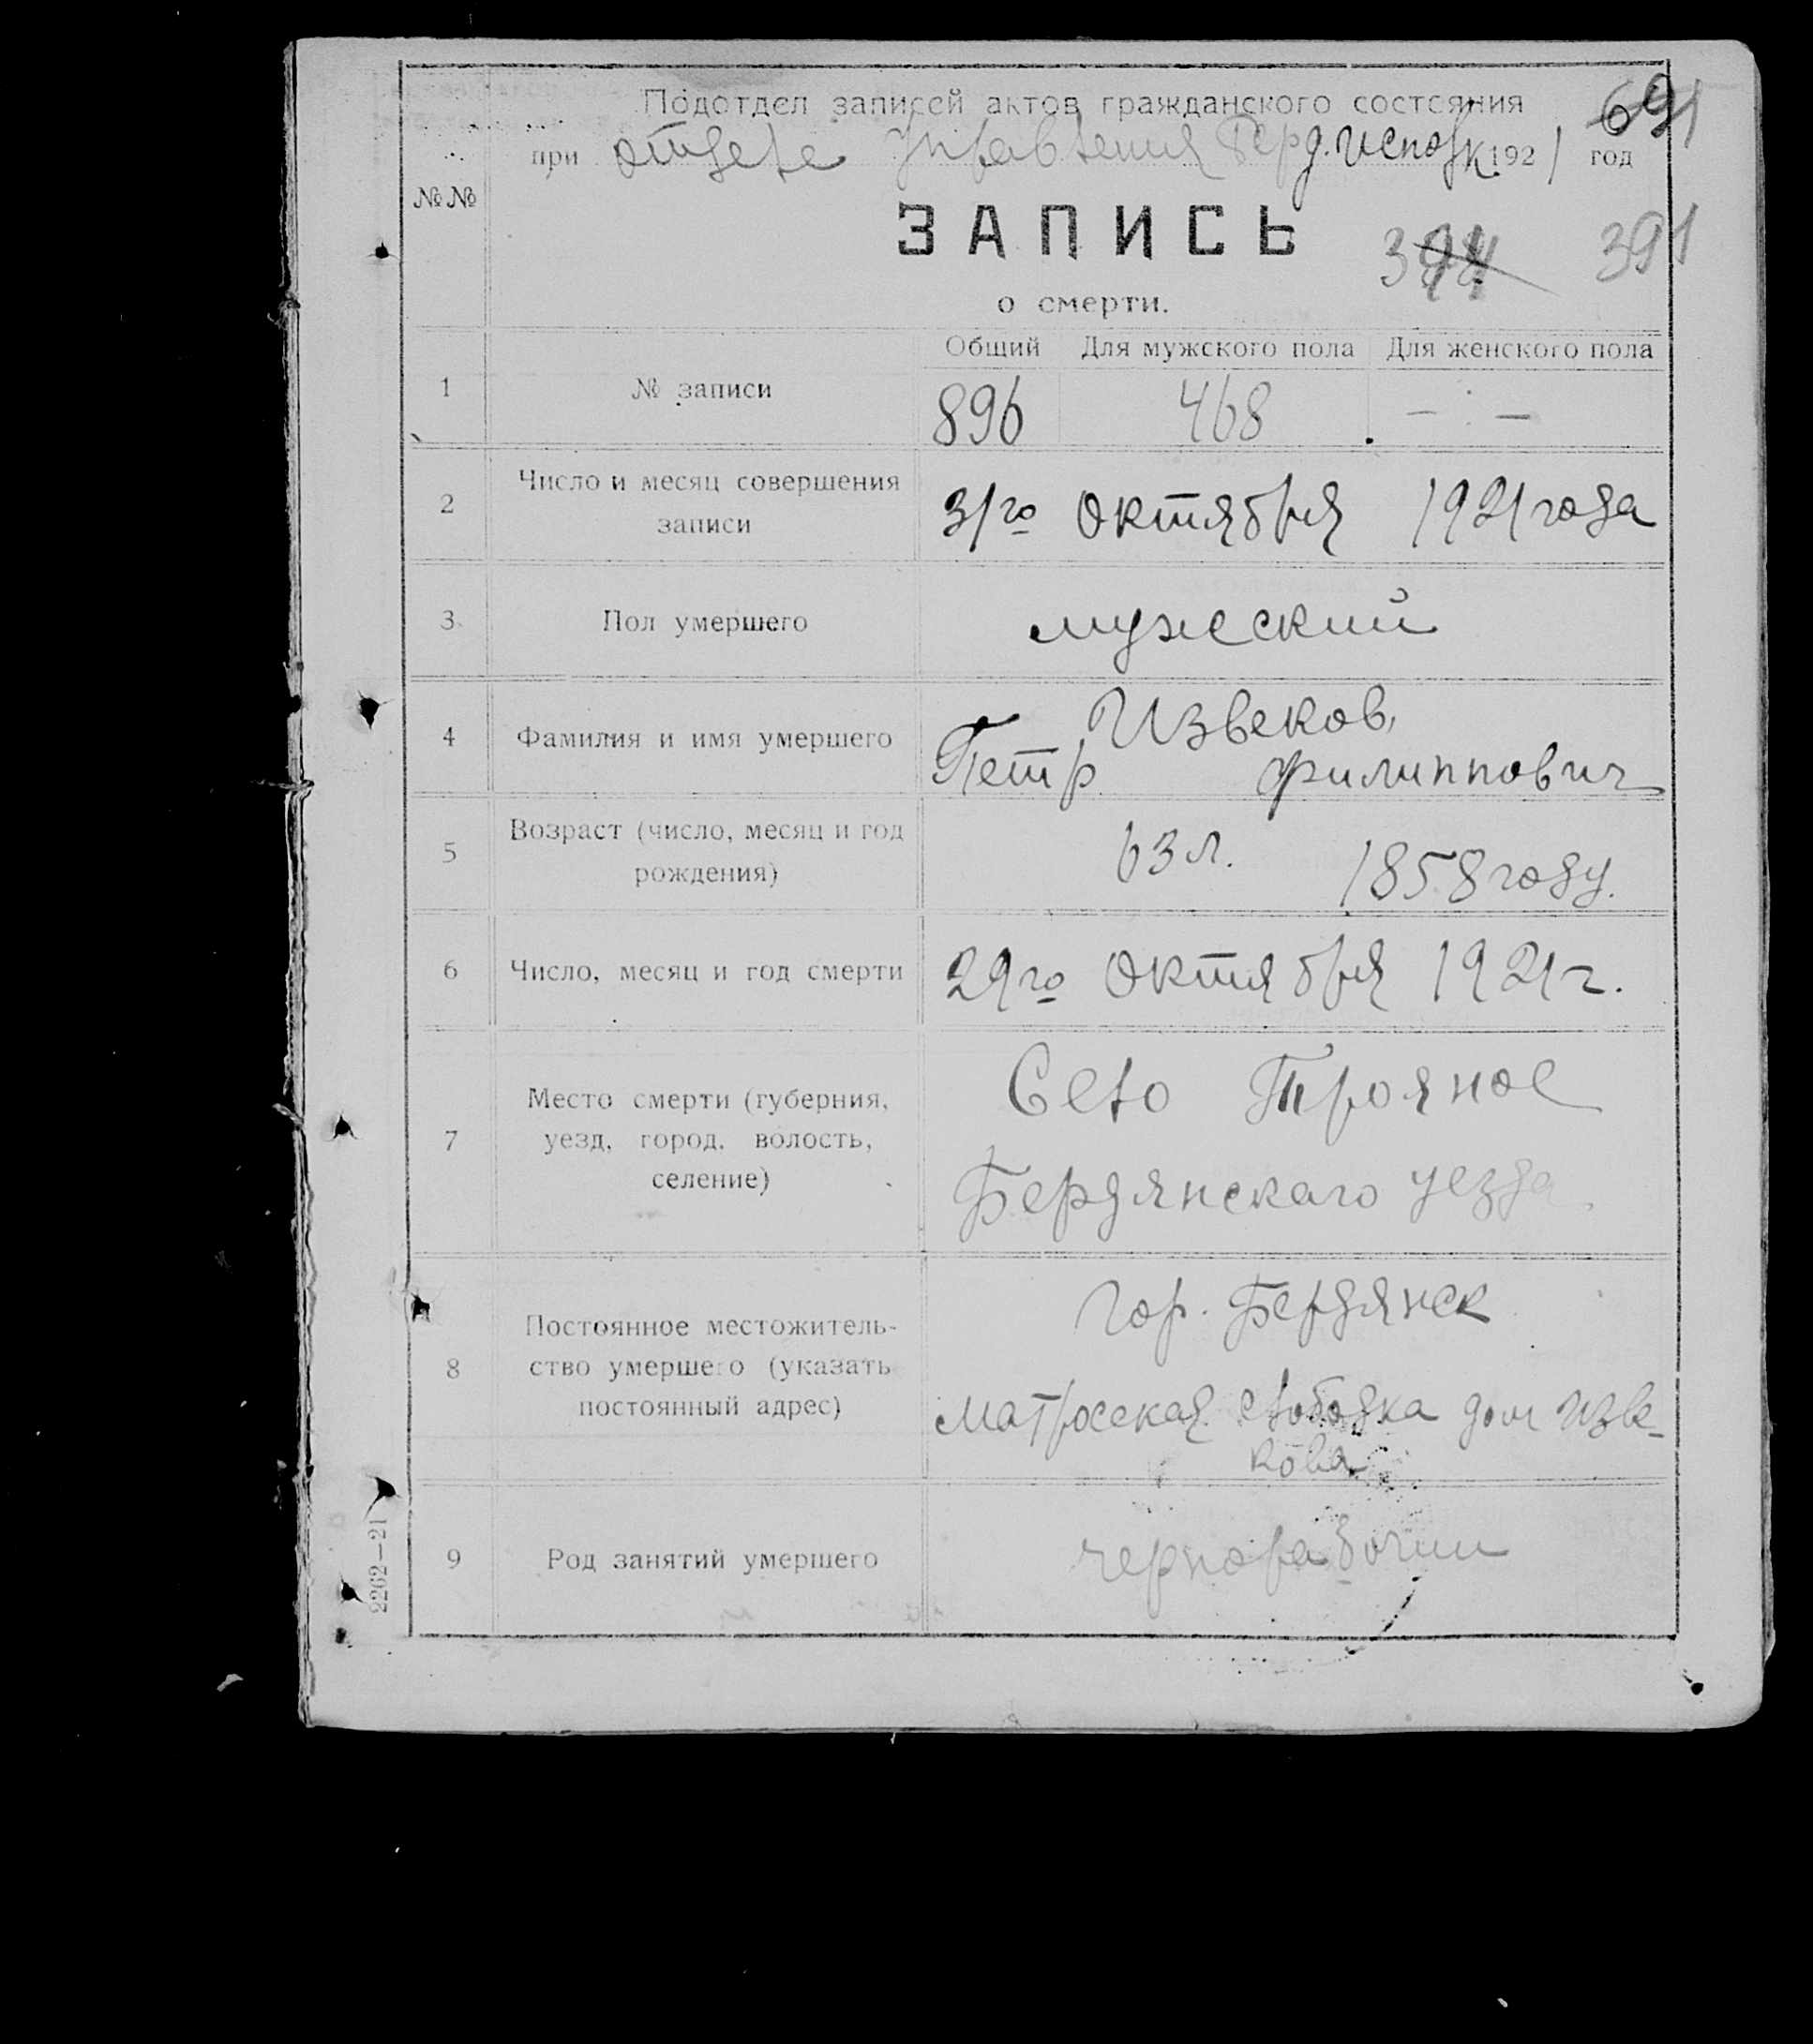 691
Подотдел записей актов гражданского состояния
при отделе Управления Берд. Исполк. 1921 год
№№
ЗАПИСЬ
391
о смерти.
Общий Для мужского пола Для женского пола
1 № записи 896 468 — —
2 Число и месяц совершения
записи
31го октября 1921 года
3 Пол умершего мужеский
4 Фамилия и имя умершего
Извеков,
Петр Филиппович
5 Возраст (число, месяц и год
рождения)
63 л. 1858 году.
6 Число, месяц и год смерти 29го октября 1921 г.
7 Место смерти (губерния,
уезд, город, волость,
селение)
Село Трояное
Бердянскаго уезда
8 Постоянное местожитель-
ство умершего (указать
постоянный адрес)
гор. Бердянск
матросская слободка дом Изве-
кова
9 Род занятий умершего чернорабочий
2262—21